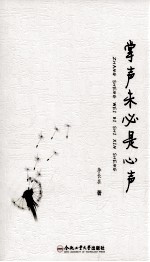 掌声未必是心声
ZHANG SHENG WEI BI SHI XIN SHENG
李长员 著
合肥工业大学出版社